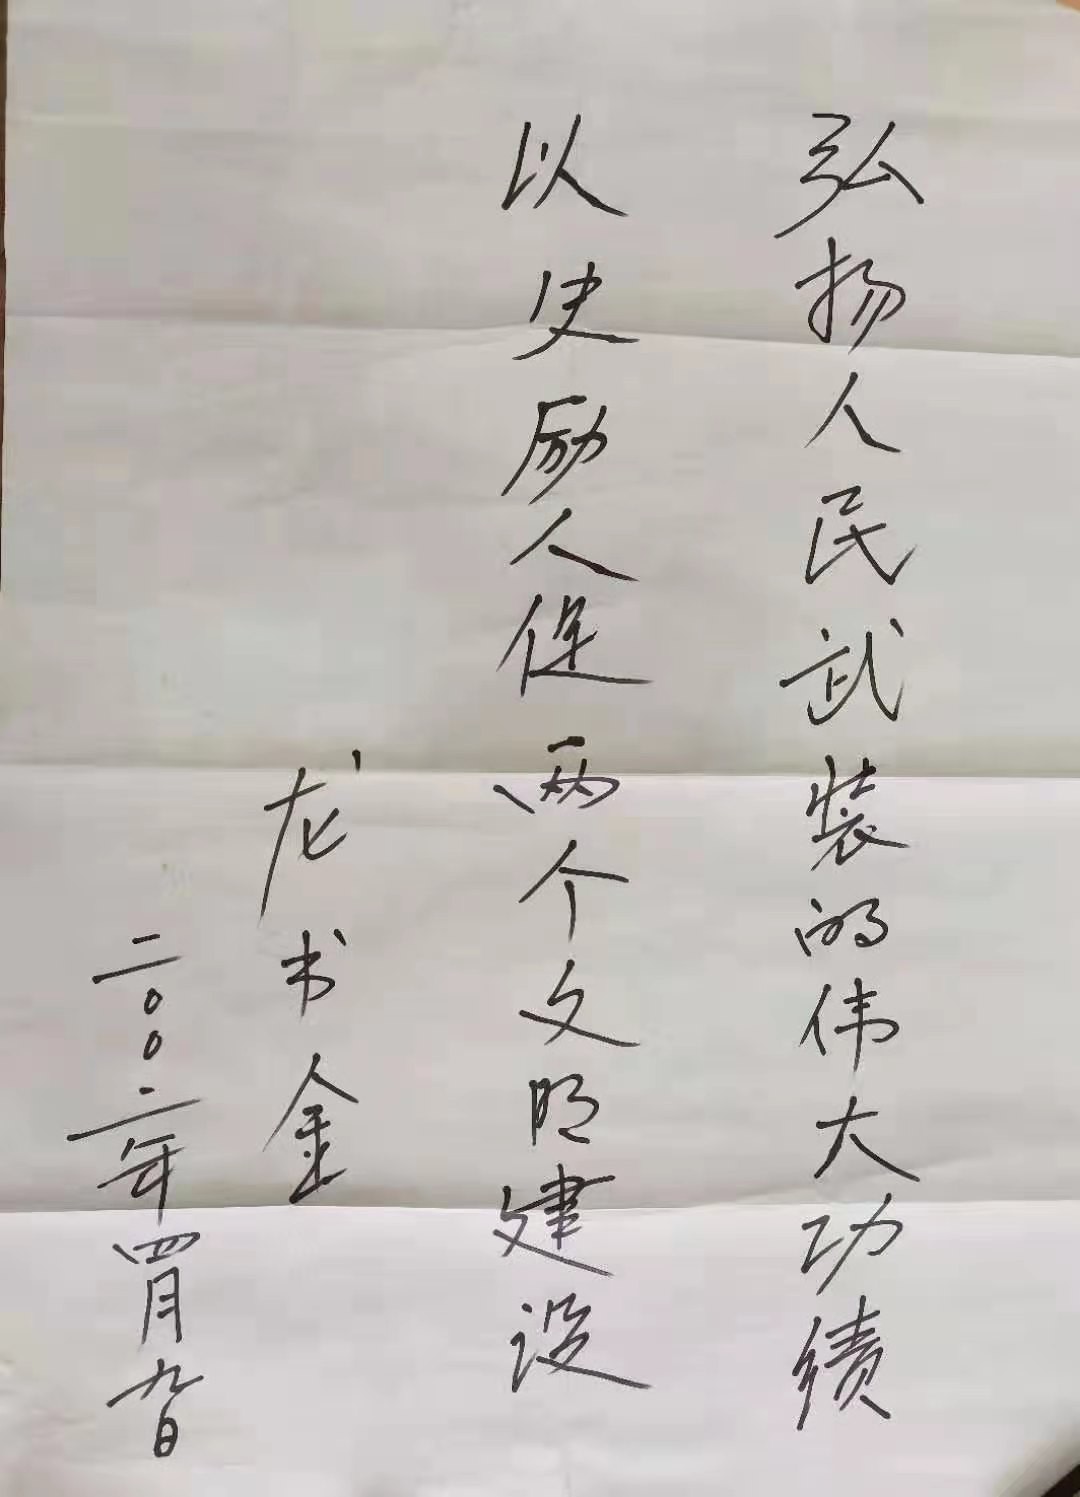 弘扬人民武装的伟大功绩
以史励人促两个文明建设
龙书金
二〇〇二年四月九日